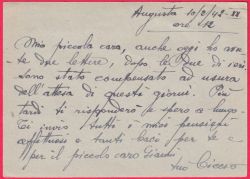 Augusta 10/6/42-XX
ore 12
Mia piccola cara, anche oggi ho avu=
te due lettere, dopo le due di ieri.
Sono stato compensato ad usura
dell'attesa di questi giorni. Più
tardi ti risponderò e spero a lungo.
Ti invio tutti i miei pensieri
affettuosi e tanti baci per te e
per il piccolo caro
tuo